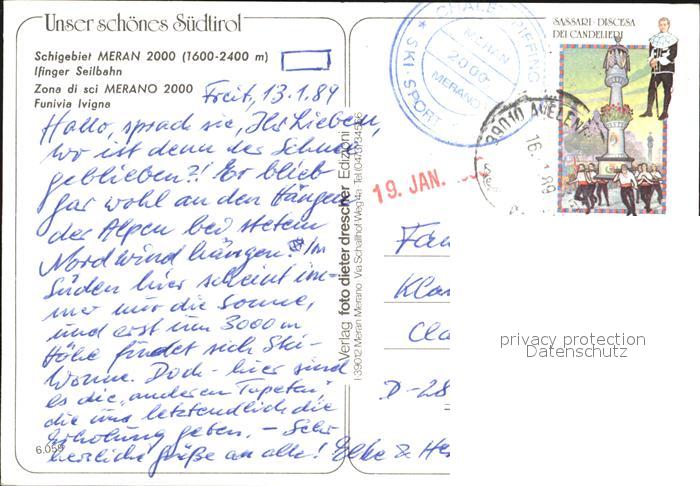 Unser schönes Südtirol
Schigebiet MERAN 2000 (1600-2400 m)
Ifinger Seilbahn
Zona di sci MERANO 2000
Funivia Ivigna
Freit, 13.1.89
Hallo, sprach sie, Ihr Lieben,
wo ist denn der Schnee
geblieben?! Er blieb
gar wohl an den Hängen
der Alpen bei stetem
Nordwind hängen! Im
Süden hier scheint im-
mer nur die Sonne,
und erst um 3000 m
Höhe findet sich Ski-
Wonne. Doch - hier sind
es die "anderen Tapeten"
die uns letztendlich die
Erholung geben. - Sehr
herzliche Grüße an alle! Elke & He
6.059
Verlag foto dieter drescher Edizioni
I-39012 Meran Merano Via Schallhof-Weg
CHALET PIFFING
MERAN
2000
MERANO
* SKI-SPORT
SASSARI - DISCESA
DEI CANDELIERI
39010 AVELEN
16.
89
19. JAN.
Fam
Kla
Cla
D-28
privacy protection
Datenschutz